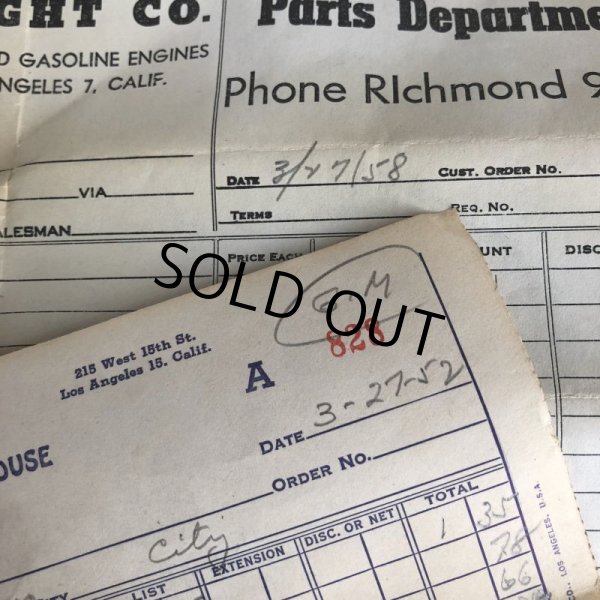 GHT CO.
Parts Departme
D GASOLINE ENGINES
NGELES 7, CALIF.
Phone RIchmond 9
DATE 3/27/58 CUST. ORDER NO.
VIA
TERMS
REQ. NO.
ALESMAN
PRICE EACH
UNT
DISC
SOLD OUT
215 West 15th St.
Los Angeles 15, Calif.
A
828
OUSE
DATE 3-27-52
ORDER NO.
City
TOTAL
DISC. OR NET
EXTENSION
LIST
1 35
78
66
CO., LOS ANGELES, U.S.A